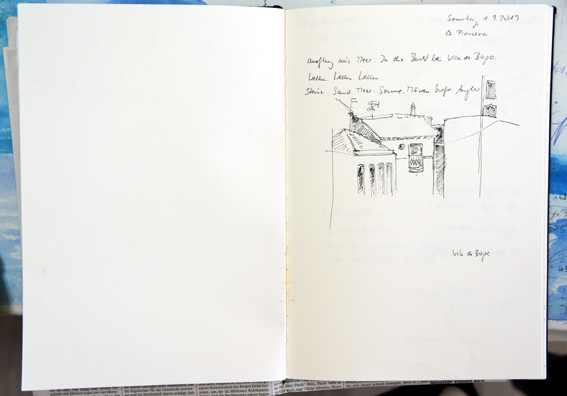 Sonntag, 1.9.2019
Ausflug ans Meer. In die Bucht bei Vila do Bispo.
Wellen. Wellen. Wellen
Steine. Sand. Meer. Sonne. Möwen. Surfer. Angler
Vila do Bispo